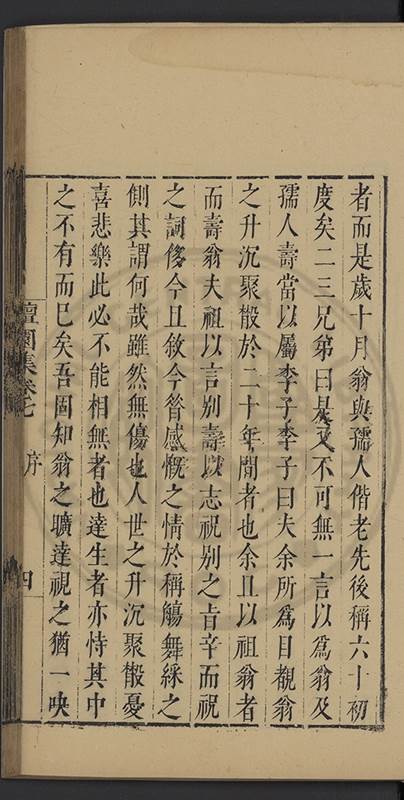 者而是歲十月翁與孺人偕老先後稱六十初
度矣二三兄弟曰是又不可無一言以爲翁及
孺人壽當以屬李子李子曰夫余所爲目覩翁
之升沉聚散於二十年間者也余且以祖翁者
而壽翁夫祖以言別壽以志祝別之旨辛而祝
之詞侈今且敘今昔感慨之情於稱觴舞綵之
側其謂何哉雖然無傷也人世之升沉聚散憂
喜悲樂此必不能相無者也達生者亦恃其中
之不有而已矣吾固知翁之曠達視之猶一吷
集卷七 序 四